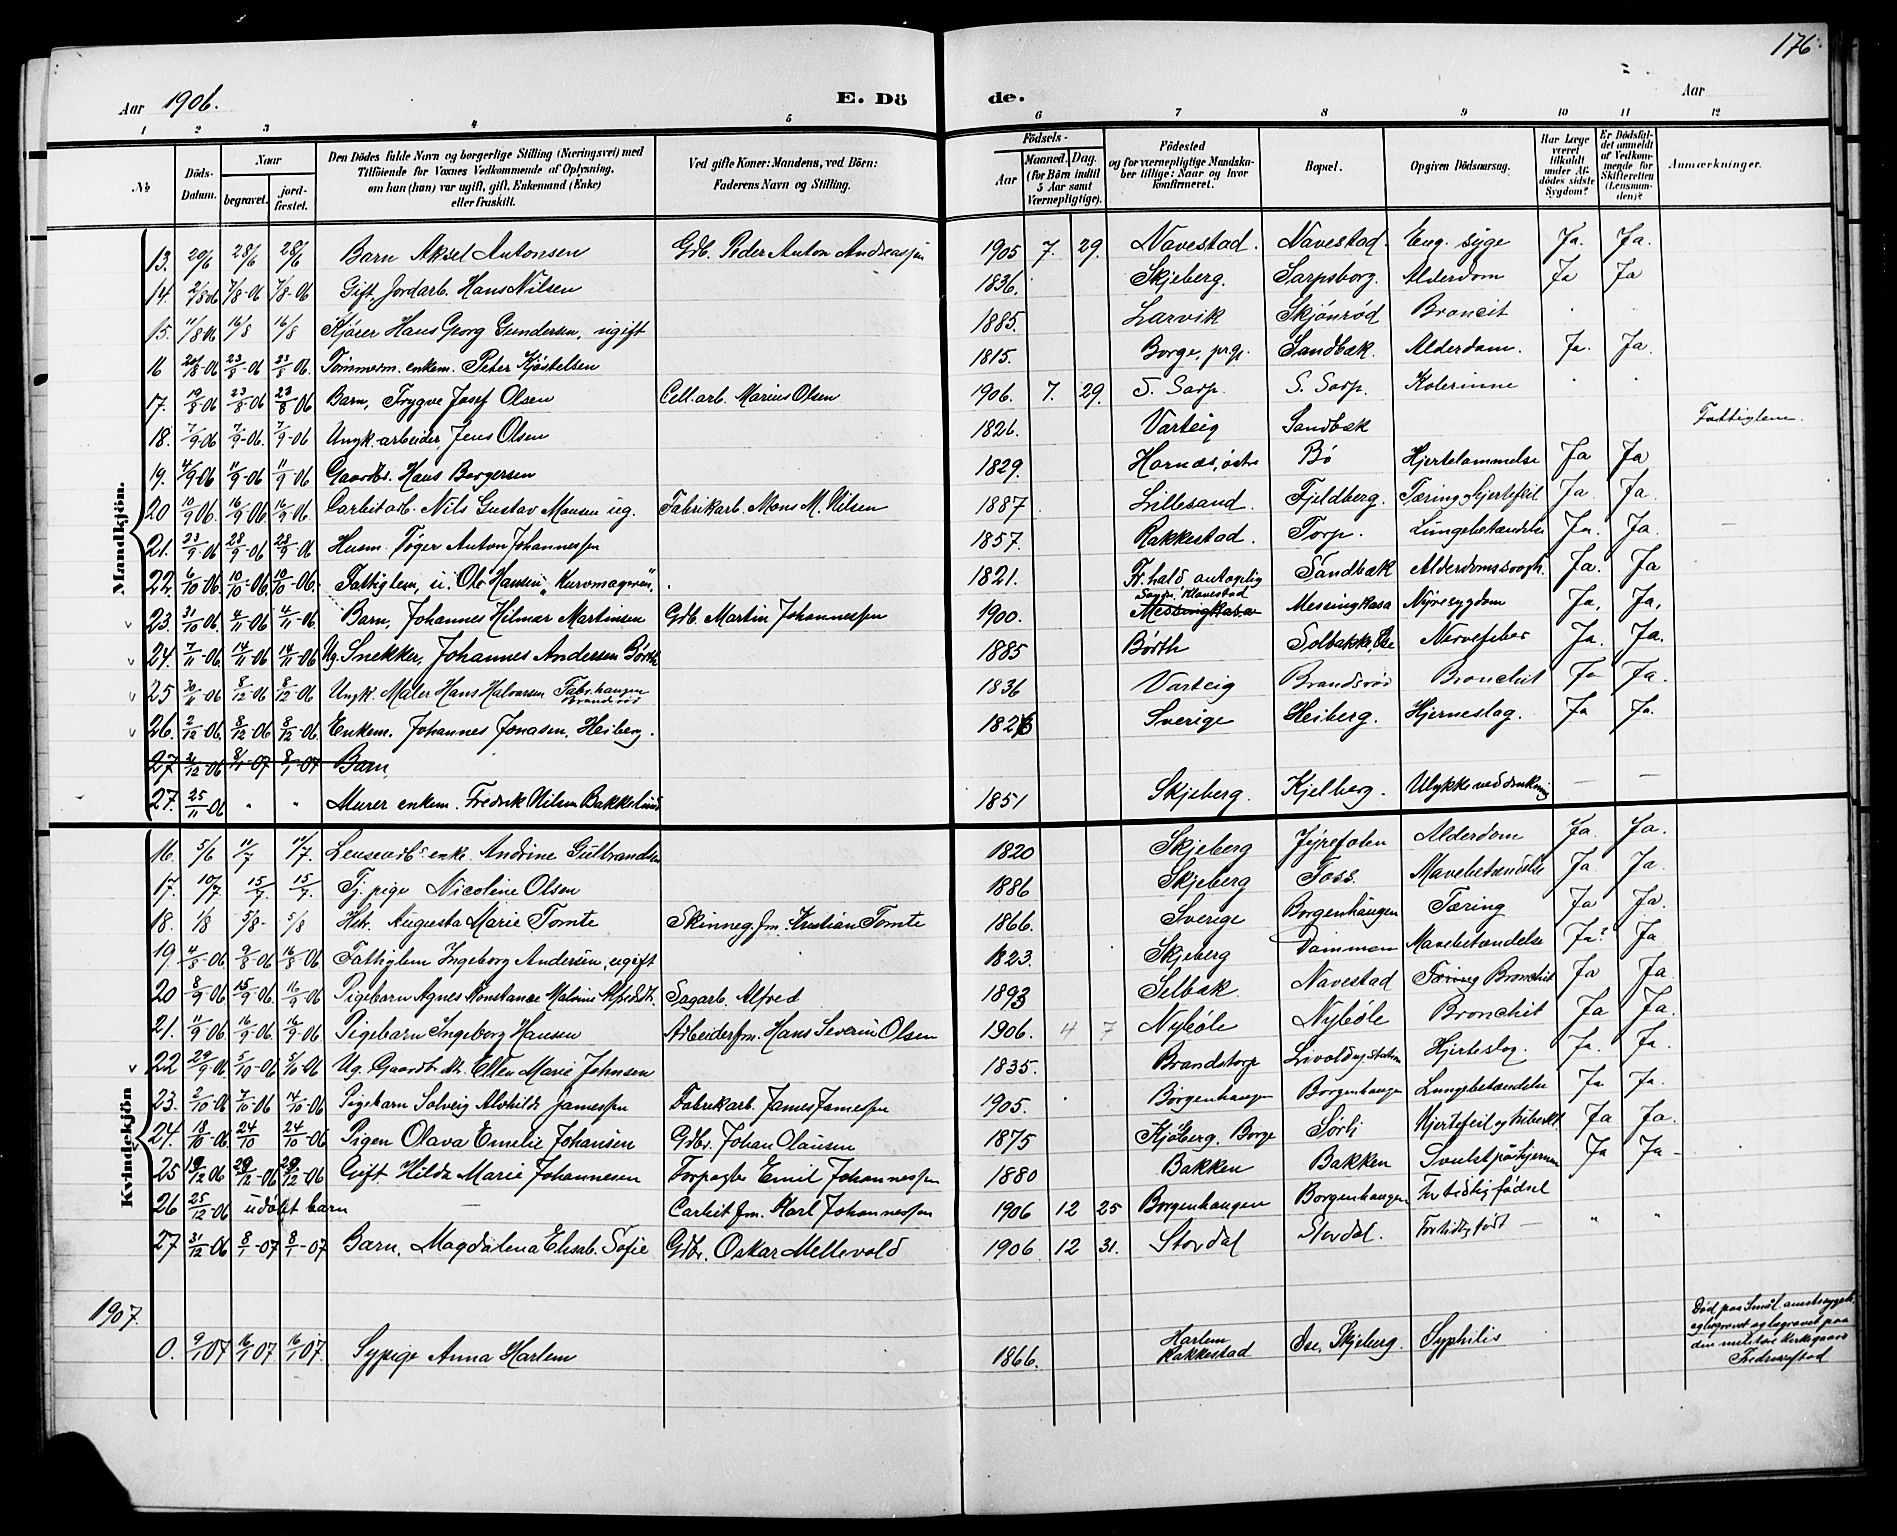 176
Aar 1906. E. Dö de. Aar
1 2 3 4 5 6 7 8 9 10 11 12
No Döds-Datum. Naar begravet. jord-fæstet. Den Dödes fulde Navn og borgerlige Stilling (Næringsvei) med Tilföiende for Voxnes Vedkommende af Oplysning, om han (hun) var ugift, gift, Enkemand (Enke) eller fraskilt. Ved gifte Koner: Mandens, ved Börn: Faderens Navn og Stilling. Födsels- Aar Maaned. Dag. (for Börn indtil 5 Aar samt Værnepligtige). Födested og for værnepligtige Mandskaber tillige: Naar og hvor konfirmeret. Bopæl. Opgiven Dödsaarsag. Har Læge været tilkaldt under Afdödes sidste Sygdom? Er Dödsfaldet anmeldt af Vedkommende for Skifteretten (Lensmanden)? Anmærkninger.
Mandkjön.
13. 20/6 28/6 28/6 Barn Aksel Antonsen Gdb. Peder Anton Andreassen 1905 7. 29. Navestad. Navestad. Eng. syge Ja. Ja.
14. 2/8 06 7/8-06 7/8-06 Gift, Jordarb. Hans Nilsen 1836. Skjeberg. Sarpsborg. Alderdom Ja Ja
15. 11/8 06 16/8 16/8 Kjører Hans Georg Gundersen, ugift 1885. Larvik Skjønrød Broncit
16 20/8-06 23/8-06 23/8 06. Tømmerm. enkem. Peter Kjøstelsen 1815. Borge, prgj. Sandbæk. Alderdom. Ja. Ja.
17. 19/8-06 23/8-06 23/8 06 Barn, Trygve Josef Olsen Cell. arb. Marius Olsen 1906. 7. 29. S. Sarp. S. Sarp. Kolerinne
18. 7/9 06 7/9-06. 7/9-06 Ungk. arbeider, Jens Olsen 1826. Varteig Sandbæk Fattiglem.
19. 4/9 06 11/9-06 11/9-06 Gaardbr. Hans Borgersen 1829. Hornæs, østre Bø Hjertelammelse Ja Ja
20 10/9 06. 16/9 06. 16/9 06. Carbitarb. Nils Gustav Monsen ug. Fabrikarb. Mons M. Nilsen 1887 Lillesand. Fjeldberg. Tæring & hjertefeil Ja. Ja.
21. 23/9-06 28/9-06 28/9 06 Husm. Tøger Anton Johannessen 1857. Rakkestad. Torp. Lungebetændelse Ja. Ja.
22. 6/10 06. 10/10-06. 10/10-06. Fattiglem, u. Ole Hansen "Kurvmageren". 1821. Fr.hald antagelig Sandbæk Alderdomssvagh. Ja. Ja
23. 31/10-06. 4/11-06 4/11-06. Barn, Johannes Hilmar Martinsen Gdb. Martin Johannessen 1900. Messingkasa Messingkasa Nyresygdom Ja, Ja,
24. 7/11-06 14/11-06 14/11 06 Ug. Snekker, Johannes Andersen Børth 1885 Børth Solbakke, Ise Nervefeber Ja. Ja.
25 30/11 06 8/12 06 8/12 06 Ungk. Maler Hans Halvorsen Brandsrød 1836 Varteig Brandsrød Bronchit Ja Ja.
26. 2/12-06 8/12 06 8/12 06 Enkem. Johannes Jonasen, Heiberg. 1826 Sverige Heiberg. Hjerneslag. Ja Ja.
27 31/12-06 8/1-07 8/1-07 Barn,
27. 25/11-06 " " Murer enkem. Fredrik Nilsen Bakkelund 1851 Skjeberg. Kjelberg. Ulykke ved drukning — —
Kvindekjön
16. 5/6 11/7 11/7. Lensearbs enke Andrine Gulbrandsen 1820 Skjeberg Alderdom Ja. Ja.
17. 10/7 15/7. 15/7. Tj. pige Nicoline Olsen 1886 Skjeberg Foss. Mavebetændelse Ja. Ja.
18. 1/8 5/8- 5/8 Hst. Augusta Marie Tomte Skinneg.fm. Kristian Tomte 1866. Sverige Borgenhaugen Tæring Ja Ja.
19. 4/8-06 9/8-06 16/8-06 Fattiglem Ingeborg Andersen, ugift 1823. Skjeberg Dammen Mavebetændelse Ja? Ja
20 8/9-06 15/9-06. 16/9-06 Pigebarn Agnes Konstanse Malvine Alfredsdt. Sagarb. Alfred 1893 Selbak. Navestad Tæring Bronchit Ja Ja.
21. 11/9-06 16/9-06. 16/9-06 Pigebarn Ingeborg Hansen Arbeiderfm. Hans Severin Olsen 1906. 4 7 Nybøle Nybøle Bronchit Ja Ja.
22 29/9-06 5/10-06 5/10 06 Ug. Gaardbr.dtr. Ellen Marie Johnsen 1835. Brandstorp Hjerteslag. Ja. Ja.
23. 2/10-06 7/10-06 14/10 06 Pigebarn Solveig Alvhilde Jamessen Fabrikarb. James Jamessen 1905. Borgenhaugen Borgenhaugen Lungebetændelse Ja. Ja.
24. 18/10-06 24/10 24/10-06 Pigen Olava Emelie Johansen Gdbr. Johan Olausen 1875 Kjøberg. Borge Sørli Ja Ja.
25 19/12 06 29/12-06 29/12-06 Gift Hilda Marie Johannesen Forpagter Emil Johannessen 1880 Bakken Bakken Svulst på hjernen Ja Ja-
26 25/12-06 udøbt barn — Carbit fm. Karl Johannessen 1906 12 25 Borgenhaugen Borgenhaugen For tidlig fødsel
27 31/12-06 8/1-07 8/1-07 Barn, Magdalena Elisab. Sofie Gdbr. Oskar Mellevold 1906 12 31. Stordal Stordal. For tidlig født — " "
1907.
0. 9/1 07 16/1 07 16/1 07. Sypige Anna Harlem 1866. Harlem Rakkestad Ise, Skjeberg. Syphilis Død paa Smål. amtssygeh. og begravet paa den militære kirkegaard Fredrikstad